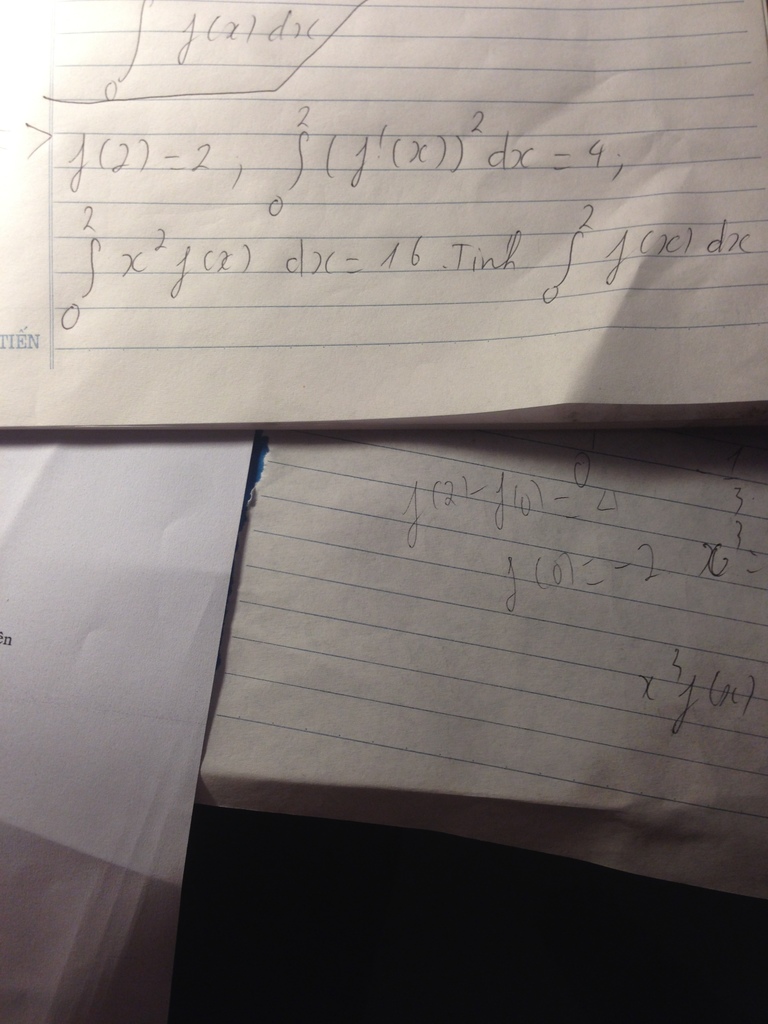 ∫₀ f(x) dx
f(2) = 2 ; ∫₀² (f'(x))² dx = 4 ;
∫₀² x² f(x) dx = 16 . Tính ∫₀² f(x) dx
TIẾN
0
f(2) - f(0) = 4 1/3
f(0) = -2 x³ =
ên
x³ f(x)